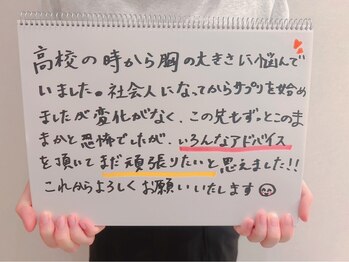 高校の時から胸の大きさに悩んで
いました。社会人になってからサプリを始め
ましたが変化がなく、この先もずっとこのま
まかと恐怖でしたが、いろんなアドバイス
を頂いてまだ頑張りたいと思えました!!
これからよろしくお願いいたします